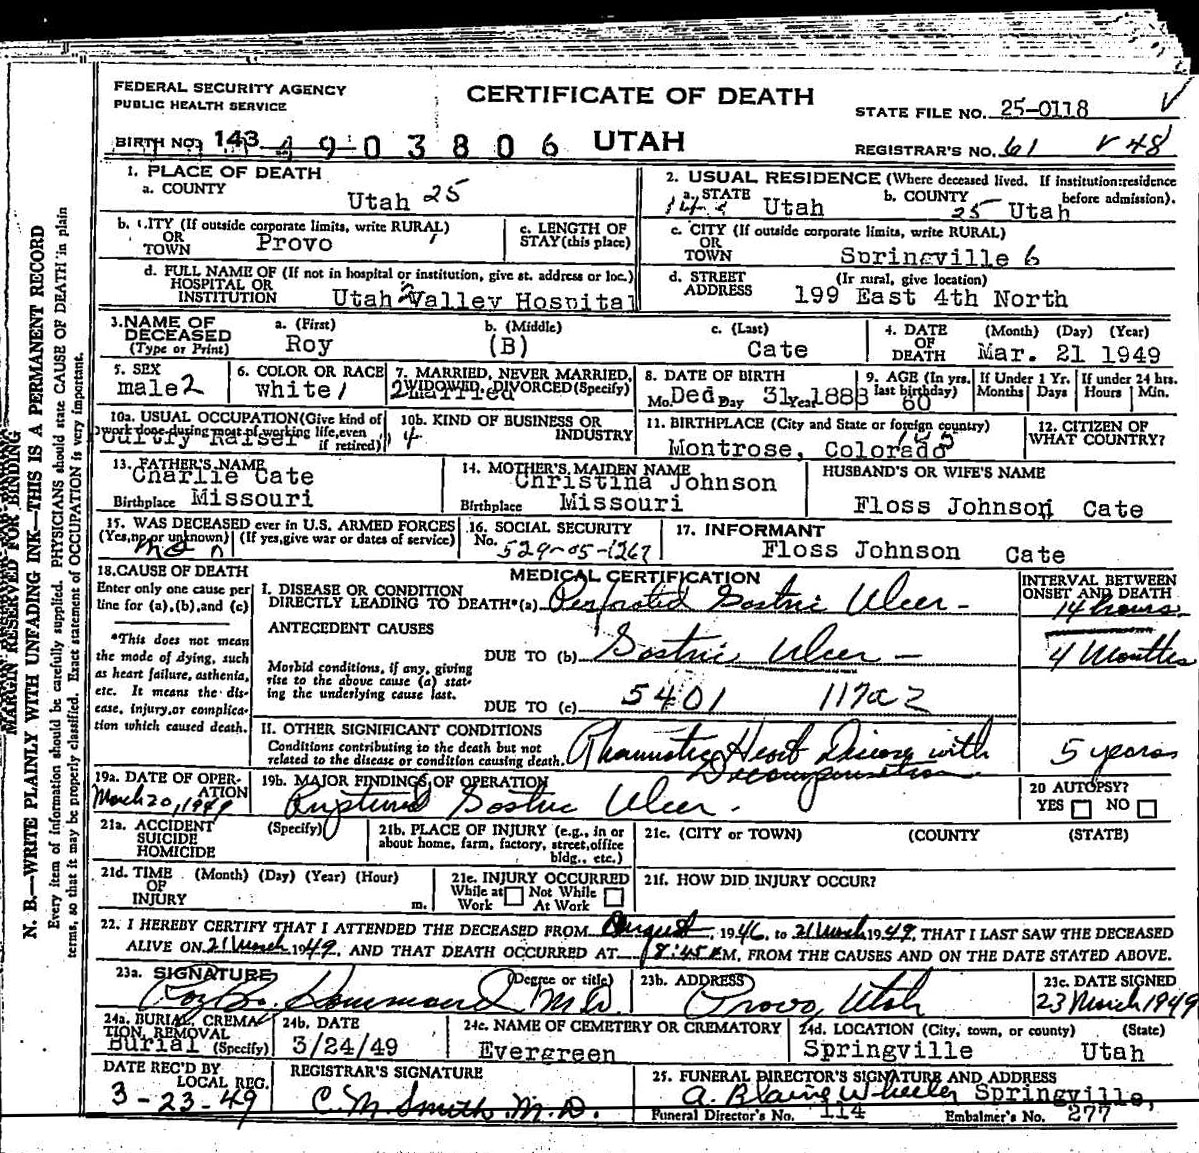 FEDERAL SECURITY AGENCY
PUBLIC HEALTH SERVICE
CERTIFICATE OF DEATH
UTAH
STATE FILE NO. 25-0118
BIRTH NO. 143 4903806
REGISTRAR'S NO. 61 V 48
1. PLACE OF DEATH
a. COUNTY
Utah 25
2. USUAL RESIDENCE (Where deceased lived. If institution:residence before admission).
a. STATE Utah b. COUNTY 25 Utah
b. CITY (If outside corporate limits, write RURAL)
OR
TOWN Provo
c. LENGTH OF
STAY (this place)
c. CITY (If outside corporate limits, write RURAL)
OR
TOWN Springville 6
d. FULL NAME OF (If not in hospital or institution, give st. address or loc.)
HOSPITAL OR
INSTITUTION Utah Valley Hospital
d. STREET (Ir rural, give location)
ADDRESS 199 East 4th North
3. NAME OF
DECEASED
(Type or Print)
a. (First)
Roy
b. (Middle)
(B)
c. (Last)
Cate
4. DATE
OF
DEATH
(Month) (Day) (Year)
Mar. 21 1949
5. SEX
male 2
6. COLOR OR RACE
White 1
7. MARRIED, NEVER MARRIED,
WIDOWED, DIVORCED (Specify)
2 Married
8. DATE OF BIRTH
Mo. Ded Day 31 Year 1888
9. AGE (In yrs.
last birthday)
60
If Under 1 Yr.
Months Days
If under 24 hrs.
Hours Min.
10a. USUAL OCCUPATION (Give kind of
work done during most of working life, even
if retired)
Raiser
10b. KIND OF BUSINESS OR
INDUSTRY
11. BIRTHPLACE (City and State or foreign country)
Montrose, Colorado
12. CITIZEN OF
WHAT COUNTRY?
13. FATHER'S NAME
Charlie Cate
Birthplace Missouri
14. MOTHER'S MAIDEN NAME
Christina Johnson
Birthplace Missouri
HUSBAND'S OR WIFE'S NAME
Floss Johnson Cate
15. WAS DECEASED ever in U.S. ARMED FORCES
(Yes, no, or unknown) (If yes, give war or dates of service)
16. SOCIAL SECURITY
No. 529-05-1267
17. INFORMANT
Floss Johnson Cate
18. CAUSE OF DEATH
Enter only one cause per
line for (a), (b), and (c)
*This does not mean
the mode of dying, such
as heart failure, asthenia,
etc. It means the dis-
ease, injury, or complica-
tion which caused death.
MEDICAL CERTIFICATION
INTERVAL BETWEEN
ONSET AND DEATH
I. DISEASE OR CONDITION
DIRECTLY LEADING TO DEATH*(a) Perforated Gastric Ulcer - 14 hours.
ANTECEDENT CAUSES
DUE TO (b) Gastric Ulcer - 4 Months
Morbid conditions, if any, giving
rise to the above cause (a) stat-
ing the underlying cause last.
5401 117a2
DUE TO (c)
II. OTHER SIGNIFICANT CONDITIONS
Conditions contributing to the death but not
related to the disease or condition causing death.
Rheumatic Heart Disease with
Decompensation 5 years
19a. DATE OF OPER-
ATION
March 20, 1949
19b. MAJOR FINDINGS OF OPERATION
Ruptured Gastric Ulcer.
20 AUTOPSY?
YES NO
21a. ACCIDENT
SUICIDE
HOMICIDE
(Specify)
21b. PLACE OF INJURY (e.g., in or
about home, farm, factory, street, office
bldg., etc.)
21c. (CITY or TOWN) (COUNTY) (STATE)
21d. TIME (Month) (Day) (Year) (Hour)
OF
INJURY m.
21e. INJURY OCCURRED
While at Work Not While At Work
21f. HOW DID INJURY OCCUR?
22. I HEREBY CERTIFY THAT I ATTENDED THE DECEASED FROM August, 1946, to 21 March 1949, THAT I LAST SAW THE DECEASED
ALIVE ON 21 March 1949, AND THAT DEATH OCCURRED AT 8:45 PM, FROM THE CAUSES AND ON THE DATE STATED ABOVE.
23a. SIGNATURE (Degree or title)
Roy B. Hammond M.D.
23b. ADDRESS
Provo, Utah
23c. DATE SIGNED
23 March 1949
24a. BURIAL, CREMA-
TION, REMOVAL
Burial (Specify)
24b. DATE
3/24/49
24c. NAME OF CEMETERY OR CREMATORY
Evergreen
24d. LOCATION (City, town, or county) (State)
Springville Utah
DATE REC'D BY
LOCAL REG.
3-23-49
REGISTRAR'S SIGNATURE
C. M. Smith M.D.
25. FUNERAL DIRECTOR'S SIGNATURE AND ADDRESS
A. Blaine Wheeler Springville,
Funeral Director's No. 114 Embalmer's No. 277
MARGIN RESERVED FOR BINDING
N. B.—WRITE PLAINLY WITH UNFADING INK—THIS IS A PERMANENT RECORD
Every item of information should be carefully supplied. PHYSICIANS should state CAUSE OF DEATH in plain
terms, so that it may be properly classified. Exact statement of OCCUPATION is very important.